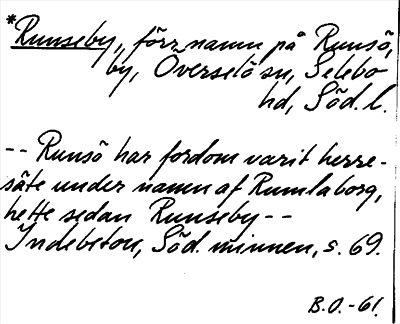 *Runseby, förr namn på Runsö,
by, Överselö sn, Selebo
hd, Söd. l.
-- Runsö har fordom varit herre-
säte under namn af Rumlaborg,
hette sedan Runseby --
Indebetou, Söd. minnen, s. 69.
B.O.-61.